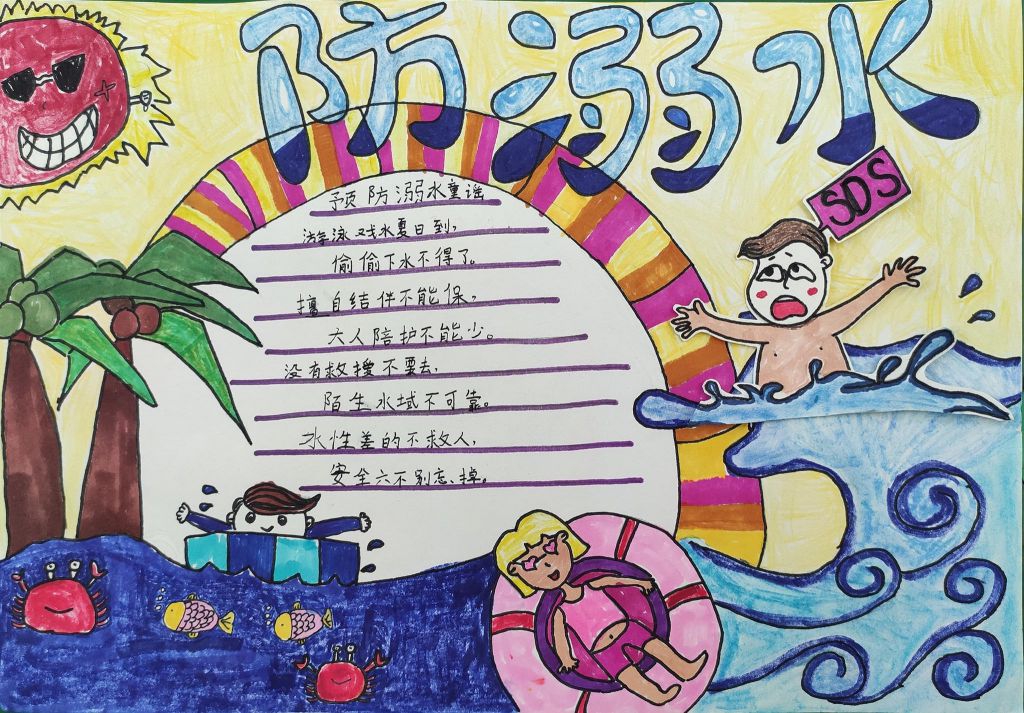 防溺水
SDS
预防溺水童谣
游泳戏水夏日到，
偷偷下水不得了。
擅自结伴不能保，
大人陪护不能少。
没有救搜不要去，
陌生水域不可靠。
水性差的不救人，
安全六不别忘掉。